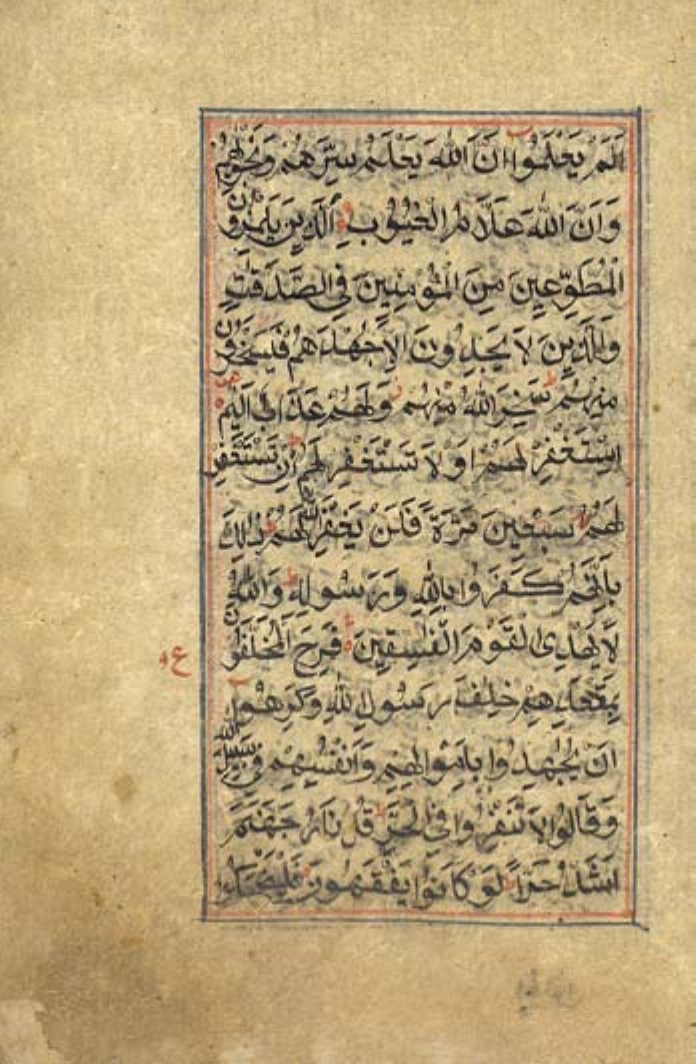 اَلَمْ يَعْلَمُوا اَنَّ اللهَ يَعْلَمُ سِرَّهُمْ وَنَجْوٰىهُمْ
وَاَنَّ اللهَ عَلَّامُ الْغُيُوْبِ اَلَّذِيْنَ يَلْمِزُوْنَ
الْمُطَّوِّعِيْنَ مِنَ الْمُؤْمِنِيْنَ فِى الصَّدَقٰتِ
وَالَّذِيْنَ لَا يَجِدُوْنَ اِلَّا جُهْدَهُمْ فَيَسْخَرُوْنَ
مِنْهُمْ سَخِرَ اللهُ مِنْهُمْ وَلَهُمْ عَذَابٌ اَلِيْمٌ
اِسْتَغْفِرْ لَهُمْ اَوْ لَا تَسْتَغْفِرْ لَهُمْ اِنْ تَسْتَغْفِرْ
لَهُمْ سَبْعِيْنَ مَرَّةً فَلَنْ يَغْفِرَ اللهُ لَهُمْ ذٰلِكَ
بِاَنَّهُمْ كَفَرُوا بِاللهِ وَرَسُوْلِهٖ وَاللهُ
لَا يَهْدِى الْقَوْمَ الْفٰسِقِيْنَ فَرِحَ الْمُخَلَّفُوْنَ
ع
بِمَقْعَدِهِمْ خِلٰفَ رَسُوْلِ اللهِ وَكَرِهُوا
اَنْ يُجٰهِدُوا بِاَمْوَالِهِمْ وَاَنْفُسِهِمْ فِى سَبِيْلِ اللهِ
وَقَالُوا لَا تَنْفِرُوا فِى الْحَرِّ قُلْ نَارُ جَهَنَّمَ
اَشَدُّ حَرًّا لَوْ كَانُوا يَفْقَهُوْنَ فَلْيَضْحَكُوا